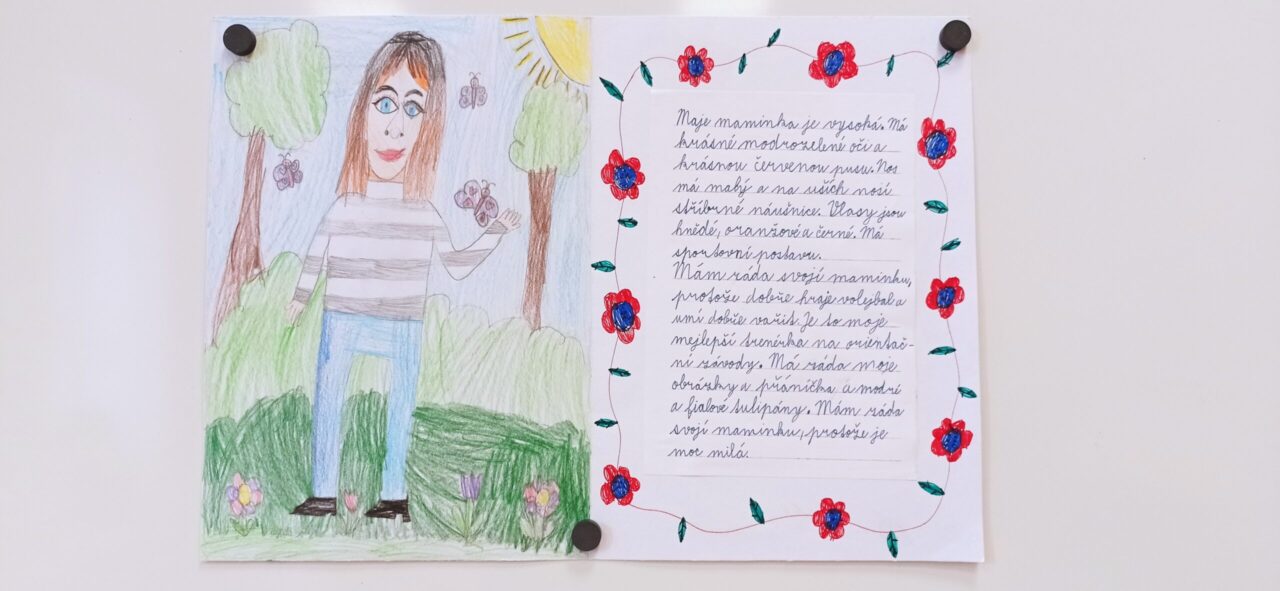 Maje maminka je vysoká. Má
krásné modrozelené oči a
krásnou červenou pusu. Nos
má malý a na uších nosí
stříbrné náušnice. Vlasy jsou
hnědé, oranžové a černé. Má
sportovní postavu.
Mám ráda svojí maminku,
protože dobře hraje volejbal a
umí dobře vařit. Je to moje
mejlepší trenérka na orientač-
ní závody. Má ráda moje
obrázky a přáníčka a modré
a fialové tulipány. Mám ráda
svojí maminku, protože je
moc milá.